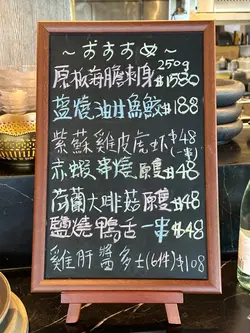 ～おすすめ～
原板海膽刺身 250g $1580
鹽燒油甘魚鮫 $188
紫蘇雞皮虎虾 $48 (一串)
赤蝦串燒 願隻 $48
荷蘭大啡菇 願隻 $48
鹽燒鴨舌一串 $48
雞肝醬多士(6件) $108